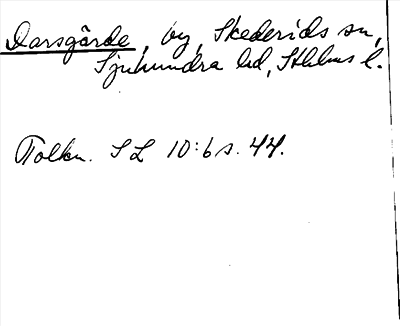 Darsgärde, by, Skederids sn,
Sjuhundra hd, Sthlms l.
Tolkn. SL 10:6 s. 44.